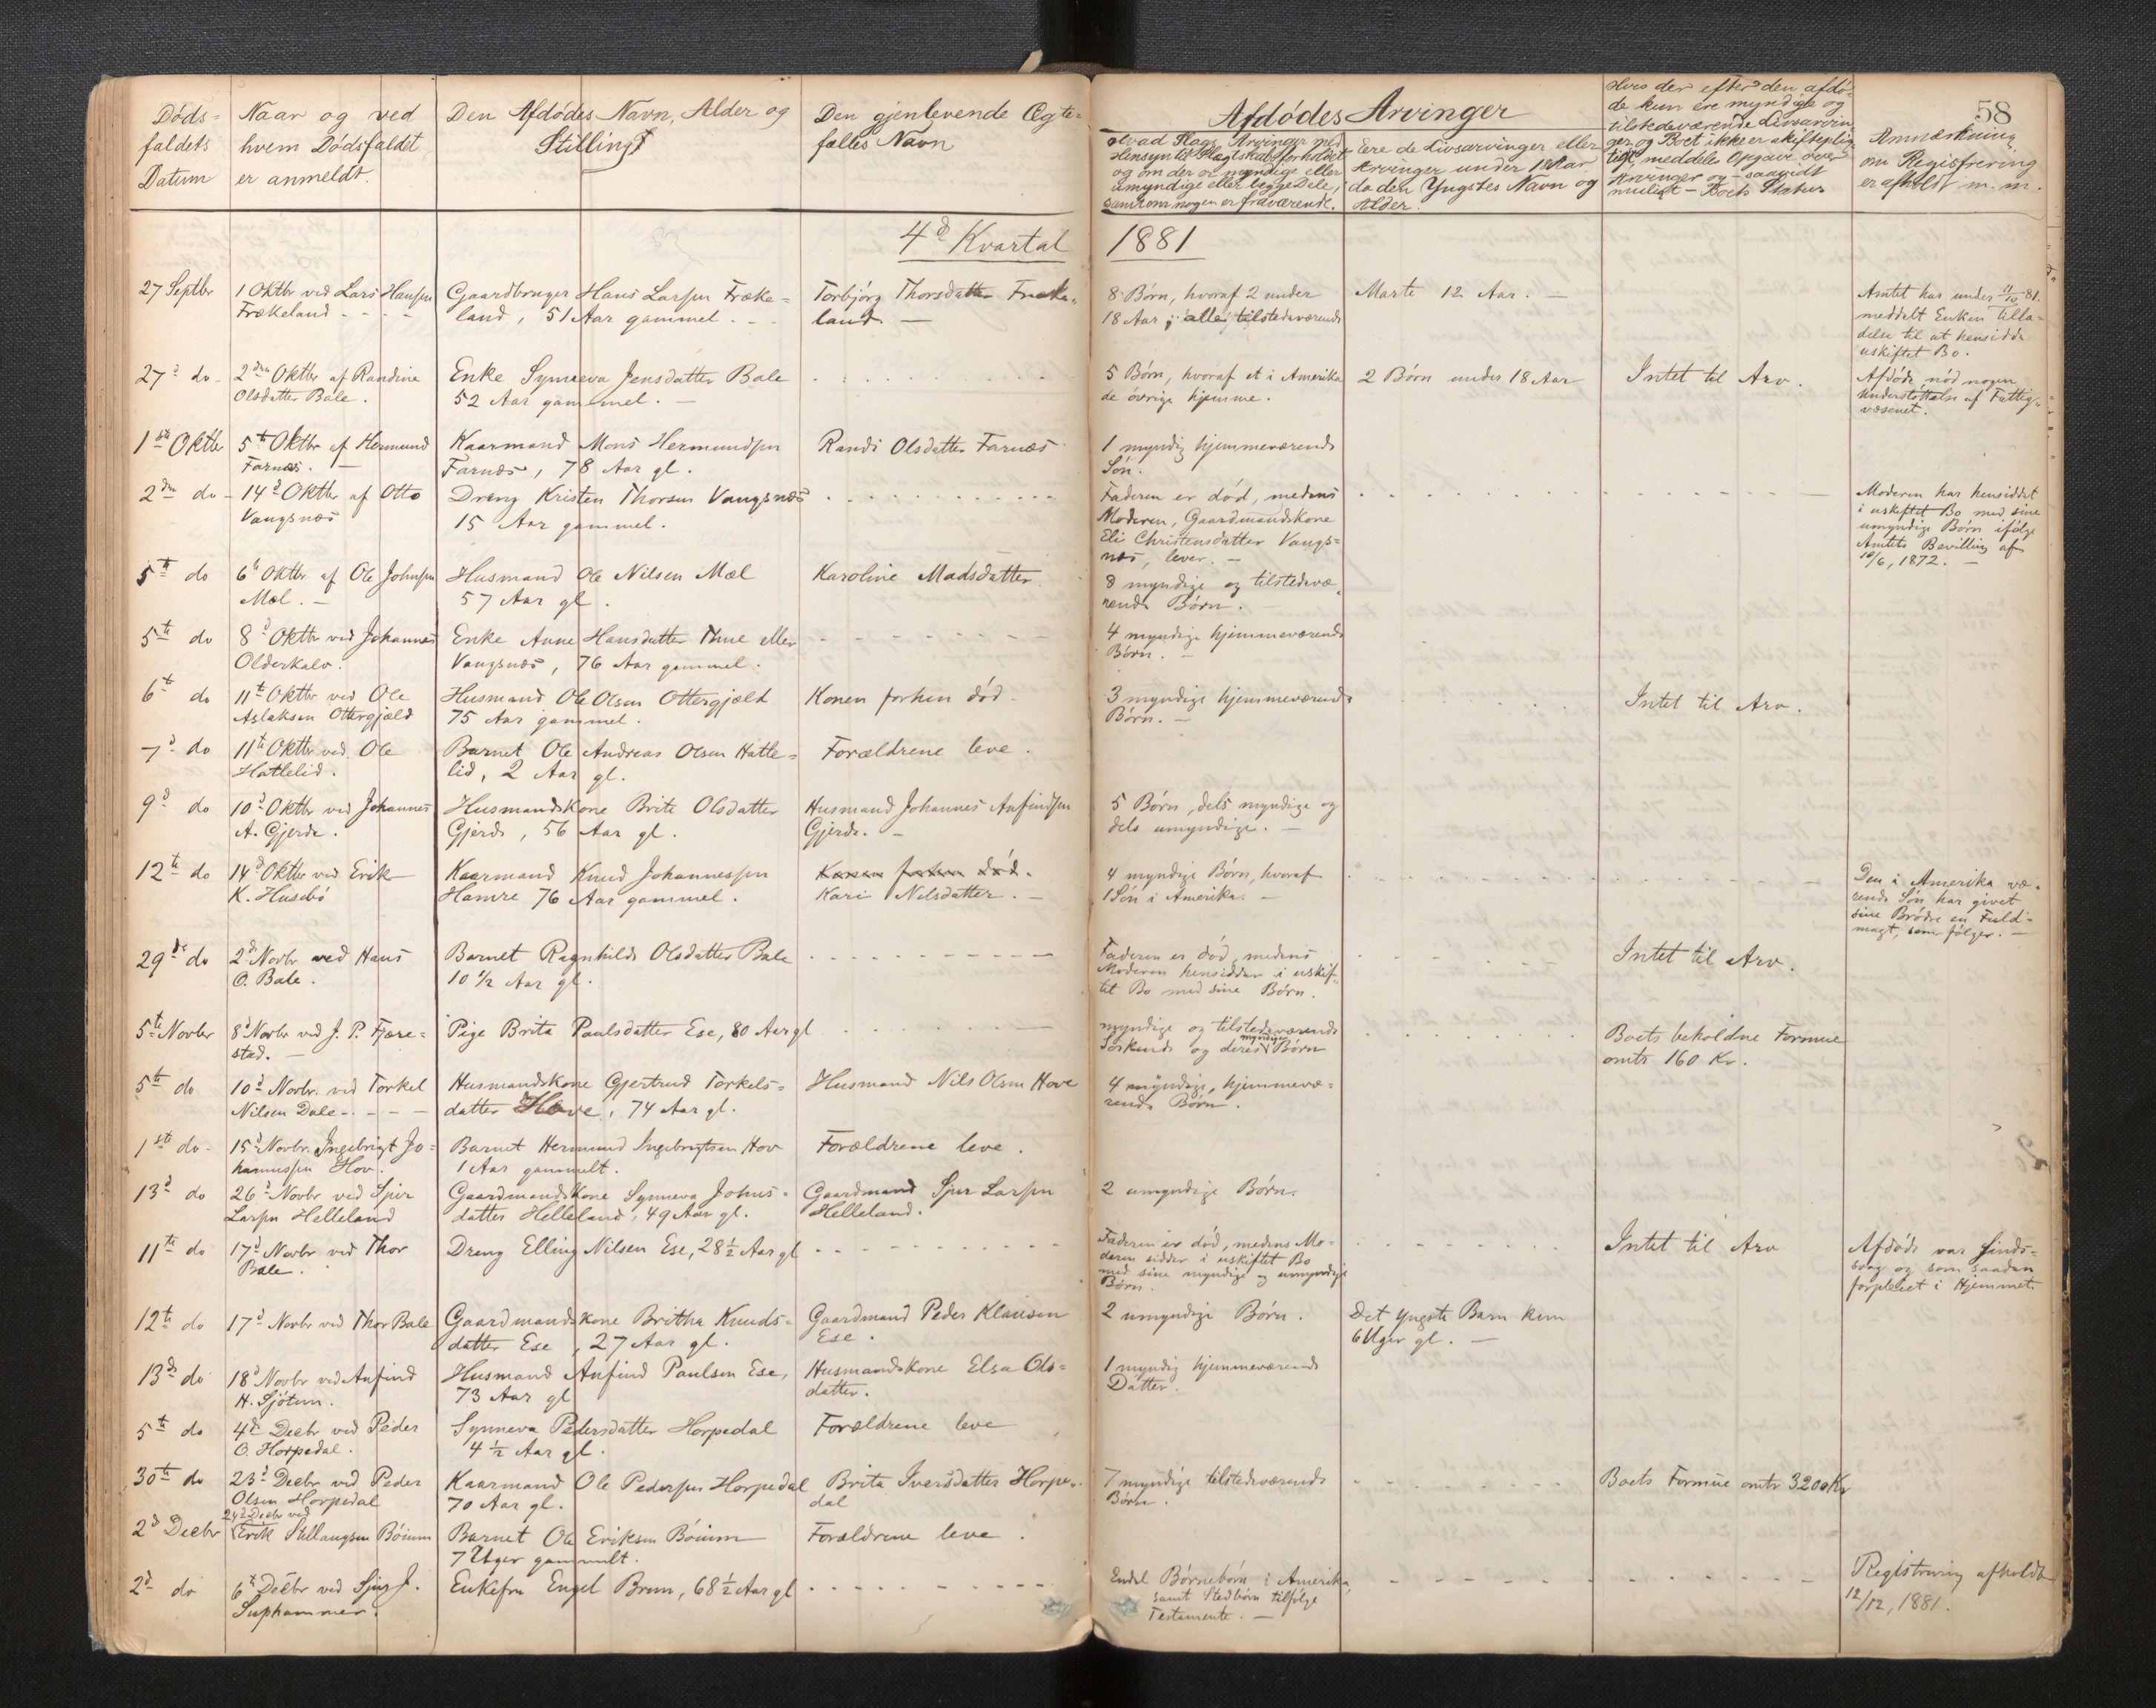 58
Døds=
faldets
Datum
Naar og ved
hvem Dødsfaldet
er anmeldt.
Den Afdødes Navn, Alder og
Stilling
Den gjenlevende Ægte=
fælles Navn
Afdødes Arvinger
Hvad Slags Arvinger med
Hensyn til Slægtskabsforholdet
og om der er myndige eller
umyndige eller begge Dele,
samt om nogen er fraværende.
Ere de Livsarvinger eller
Arvinger under 18 Aar
da den Yngstes Navn og
Alder.
Hvis der efter den afdø-
de kun ere myndige og
tilstedeværende Livsarvin
ger og Boet ikke er skiftepligtigt, meddeles Opgave over
Arvinger og – saavidt
muligt – Boets Status
Anmærkning
om Registrering
er afholdt m. m.
4d Kvartal 1881
27 Septbr
1 Oktbr ved Lars Hansen
Frækeland
Gaardbruger Hans Larsen Fræke=
land, 51 Aar gammel.
Torbjørg Thorsdatter Fræke=
land. –
8 Børn, hvoraf 2 under
18 Aar; alle tilstedeværende
Marte 12 Aar. –
Amtet har under 11/10 81.
meddelt Enken tilla=
delse til at hensidde
uskiftet Bo.
27d do –
2den Oktbr af Randine
Olsdatter Bale.
Enke Synneva Jensdatter Bale
52 Aar gammel. –
5 Børn, hvoraf et i Amerika
de øvrige hjemme.
2 Børn under 18 Aar
Intet til Arv.
Afdøde nød nogen
Understøttelse af Fattig=
væsenet.
1ste Oktbr
5te Oktbr af Hermund
Farnæs. –
Kaarmand Mons Hermundsen
Farnæs, 78 Aar gl.
Randi Olsdatter Farnæs
1 myndig hjemmeværende
Søn.
2den do –
14d Oktbr af Otto
Vangsnæs
Dreng Kristen Thorsen Vangsnæs
15 Aar gammel.
Faderen er død, medens
Moderen, Gaardmandskone
Eli Christensdatter Vangs=
næs, lever. –
Moderen har hensiddet
i uskiftet Bo med sine
umyndige Børn ifølge
Amtets Bevilling af
10/6, 1872. –
5te do
6te Oktbr. af Ole Johnsen
Mæl. –
Husmand Ole Nilsen Mæl
57 Aar gl.
Karoline Madsdatter
8 myndige og tilstedevæ=
rende Børn.
5te do
8d Oktbr ved Johannes
Olderkalv.
Enke Anne Hansdatter Thue eller
Vangsnæs, 76 Aar gammel.
4 myndige hjemmeværende
Børn. –
6te do
11te Oktbr ved Ole
Aslaksen Ottergjæld
Husmand Ole Olsen Ottergjæld
75 Aar gammel.
Konen forhen død.
3 myndige hjemmeværende
Børn. –
Intet til Arv.
7d do
11te Oktbr ved Ole
Hatlelid.
Barnet Ole Andreas Olsen Hatle=
lid, 2 Aar gl.
Forældrene leve.
9d do
10d Oktbr ved Johannes
A. Gjerde.
Husmandskone Brite Olsdatter
Gjerde, 56 Aar gl.
Husmand Johannes Anfindsen
Gjerde. –
5 Børn, dels myndige og
dels umyndige. –
12te do
14d Oktbr ved Erik
K. Husebø
Kaarmand Knud Johannessen
Hamre 76 Aar gammel.
Konen forhen død.
Kari Nilsdatter. –
4 myndige Børn, hvoraf
1 Søn i Amerika. –
Den i Amerika væ=
rende Søn har givet
sine Brødre en Fuld=
magt, som følger. –
29de do
2d Novbr ved Hans
O. Bale.
Barnet Ragnhilde Olsdatter Bale
10 1/2 Aar gl.
Faderen er død, medens
Moderen hensidder i uskif=
tet Bo med sine Børn.
Intet til Arv.
5te Novbr
8d Novbr ved J. P. Fjære=
stad. –
Pige Brita Paulsdatter Ese, 80 Aar gl
myndige og tilstedeværende
Søskende og deres myndige Børn
Boets beholdne Formue
omtr 160 Kr.
5te do
10d Novbr. ved Torkel
Nilsen Dale
Husmandskone Gjertrud Torkels=
datter Hove, 74 Aar gl.
Husmand Nils Olsen Hove
4 myndige, hjemmevæ=
rende Børn.
1ste do
15d Novbr. Ingebrigt Jo=
hannessen Hov.
Barnet Hermund Ingebrigtsen Hov
1 Aar gammelt.
Forældrene leve.
13d do
26d Novbr ved Sjur
Larsen Helleland
Gaardmandskone Synneva Johns=
datter Helleland, 49 Aar gl.
Gaardmand Sjur Larsen
Helleland.
2 umyndige Børn.
11te do
17d Novbr ved Thor
Bale.
Dreng Elling Nilsen Ese, 28 1/2 Aar gl
Faderen er død, medens Mo=
deren sidder i uskiftet Bo
med sine myndige og umyndige
Børn.
Intet til Arv
Afdøde var sinds=
svag og som saadan
forpleiet i Hjemmet.
12te do
17d Novbr ved Thor Bale
Gaardmandskone Britha Knuds=
datter Ese, 27 Aar gl.
Gaardmand Peder Klausen
Ese.
2 umyndige Børn.
Det yngste Barn kun
6 Uger gl. –
13de do
18d Novbr ved Anfind
H. Sjøtun.
Husmand Anfind Paulsen Ese,
73 Aar gl
Husmandskone Elsa Ols=
datter.
1 myndig hjemmeværende
Datter.
5te do
4de Decbr ved Peder
O. Horpedal.
Synneva Pedersdatter Horpedal
4 1/2 Aar gl.
Forældrene leve
30te do
23d Decbr ved Peder
Olsen Horpedal
Kaarmand Ole Pedersen Horpedal
70 Aar gl.
Brita Iversdatter Horpe=
dal
7 myndige tilstedeværende
Børn.
Boets Formue omtr 3200 Kr
2d Decbr
24d Decbr ved
Erik Stillaugsen Bøium
Barnet Ole Eriksen Bøium
7 Uger gammelt.
Forældrene leve.
2d do
6te Decbr ved Sjur J.
Suphammer.
Enkefru Engel Brun, 68 1/2 Aar gl
Endel Børnebørn i Amerika,
samt Stedbørn tilfølge
Testamente. –
Registrering afholdt
12/12, 1881.